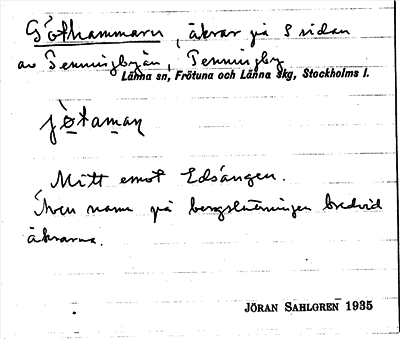 Göthammarn, åkrar på S sidan
av Penningbyån, Penningby
Länna sn, Frötuna och Länna skg, Stockholms l.
jø̀taman
Mitt emot Edsängen.
Även namn på bergsluttningen bredvid
åkrarna.
JÖRAN SAHLGREN 1935